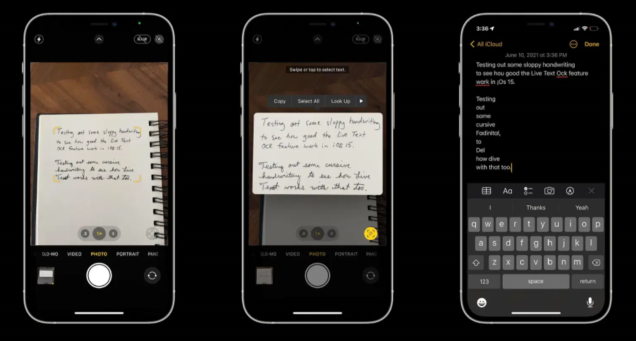 SLO-MO VIDEO PHOTO PORTRAIT PANO
Testing out some sloppy handwriting
to see how good the Live Text
OCR feature work in iOS 15.
Testing out some cursive
handwriting to see how Live
Text works with that too.
1x
Swipe or tap to select text.
Copy Select All Look Up
Testing out some sloppy handwriting
to see how good the Live Text
OCR feature work in iOS 15.
Testing out some cursive
handwriting to see how Live
Text works with that too.
SLO-MO VIDEO PHOTO PORTRAIT PANO
3:36
All iCloud Done
June 10, 2021 at 3:36 PM
Testing out some sloppy handwriting
to see hou good the Live Text Ock feature
work in jOs 15.
Testing
out
some
cursive
Fadinital,
to
Del
how dive
with that too.
Aa
I Thanks Yeah
q w e r t y u i o p
a s d f g h j k l
z x c v b n m
123 space return